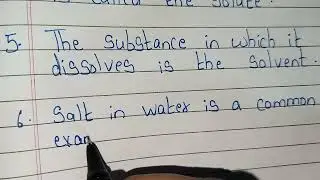 is called the solute.
5. The substance in which it
dissolves is the solvent.
6. Salt in water is a common
exam